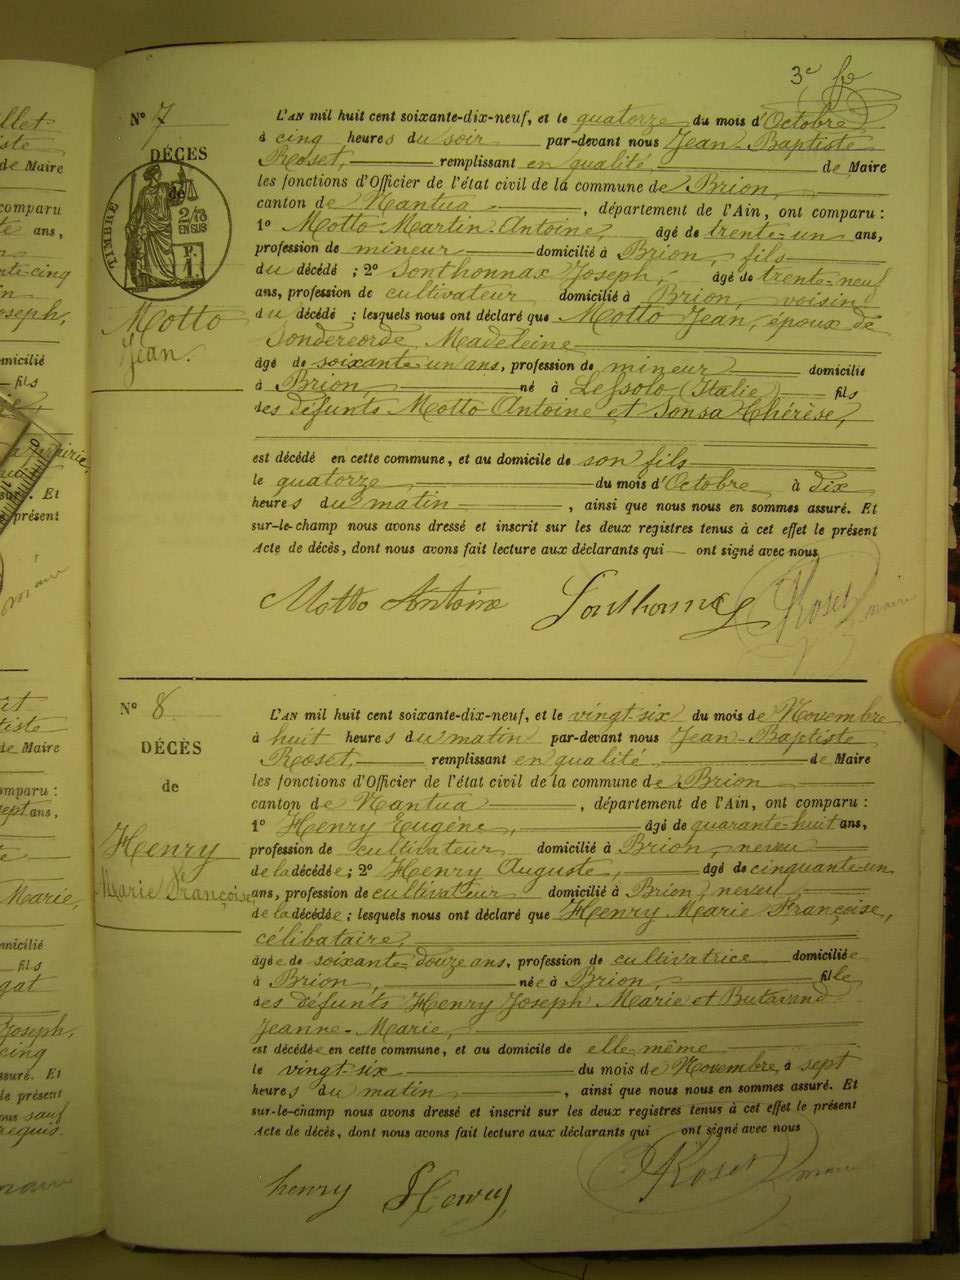 3e fo
N° 7
DÉCÈS
de
TIMBRE
2/10
EN SUS
Motto
Jean.
L'AN mil huit cent soixante-dix-neuf, et le quatorze du mois d'Octobre
à cinq heures du soir par-devant nous Jean-Baptiste
Roset, remplissant en qualité de Maire
les fonctions d'Officier de l'état civil de la commune de Brion,
canton de Nantua, département de l'Ain, ont comparu :
1° Motto Martin-Antoine, âgé de trente-un ans,
profession de mineur domicilié à Brion, fils
du décédé ; 2° Sonthonnax Joseph, âgé de trente-neuf
ans, profession de cultivateur domicilié à Brion, voisin
du décédé ; lesquels nous ont déclaré que Motto Jean, époux de
Madeleine
âgé de soixante-un ans, profession de mineur domicilié
à Brion, né à Lessolo (Italie) fils
des défunts Motto Antoine et Sonsa Thérèse,
est décédé en cette commune, et au domicile de son fils
le quatorze du mois d'Octobre, à dix
heures du matin, ainsi que nous nous en sommes assuré. Et
sur-le-champ nous avons dressé et inscrit sur les deux registres tenus à cet effet le présent
Acte de décès, dont nous avons fait lecture aux déclarants qui ont signé avec nous
Motto Antoine Sonthonnax Roset maire
N° 8
DÉCÈS
de
Henry
Marie Françoise
L'AN mil huit cent soixante-dix-neuf, et le vingt-six du mois de Novembre
à huit heures du matin par-devant nous Jean-Baptiste
Roset, remplissant en qualité de Maire
les fonctions d'Officier de l'état civil de la commune de Brion
canton de Nantua, département de l'Ain, ont comparu :
1° Henry Eugène, âgé de quarante-huit ans,
profession de cultivateur domicilié à Brion, neveu
de la décédée ; 2° Henry Auguste, âgé de cinquante-un
ans, profession de cultivateur domicilié à Brion, neveu,
de la décédée ; lesquels nous ont déclaré que Henry Marie Françoise,
célibataire,
âgée de soixante-douze ans, profession de cultivatrice domiciliée
à Brion, née à Brion, fille
des défunts Henry Joseph Marie et Butavand
Jeanne-Marie,
est décédée en cette commune, et au domicile de elle-même
le vingt-six du mois de Novembre, à sept
heures du matin, ainsi que nous nous en sommes assuré. Et
sur-le-champ nous avons dressé et inscrit sur les deux registres tenus à cet effet le présent
Acte de décès, dont nous avons fait lecture aux déclarants qui ont signé avec nous
henry Henry Roset maire